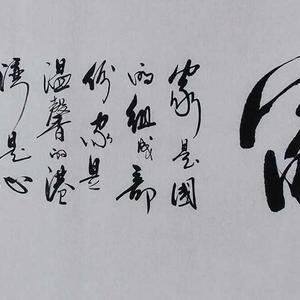 家
家是國
的組成部
份家是
温馨的港
灣是心